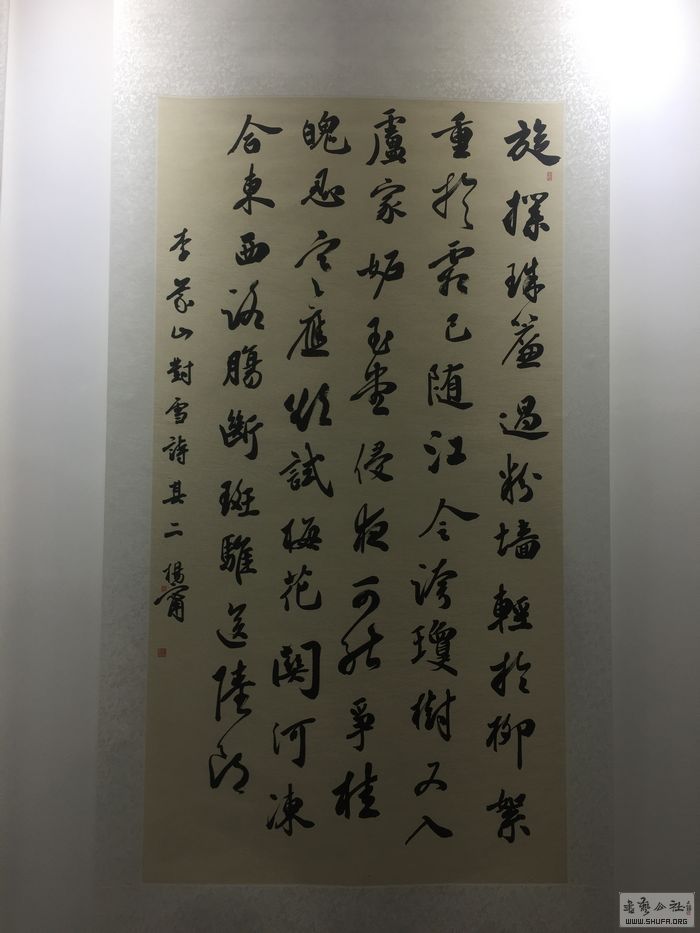 旋撲珠簾過粉墙輕於柳絮
重於霜已随江令誇瓊樹又入
盧家妒玉堂侵夜可能爭桂
魄忍寒應欲試梅花関河凍
合東西路腸斷斑騅送陸郎
李義山對雪詩其二 楊
書藝公社
WWW.SHUFA.ORG